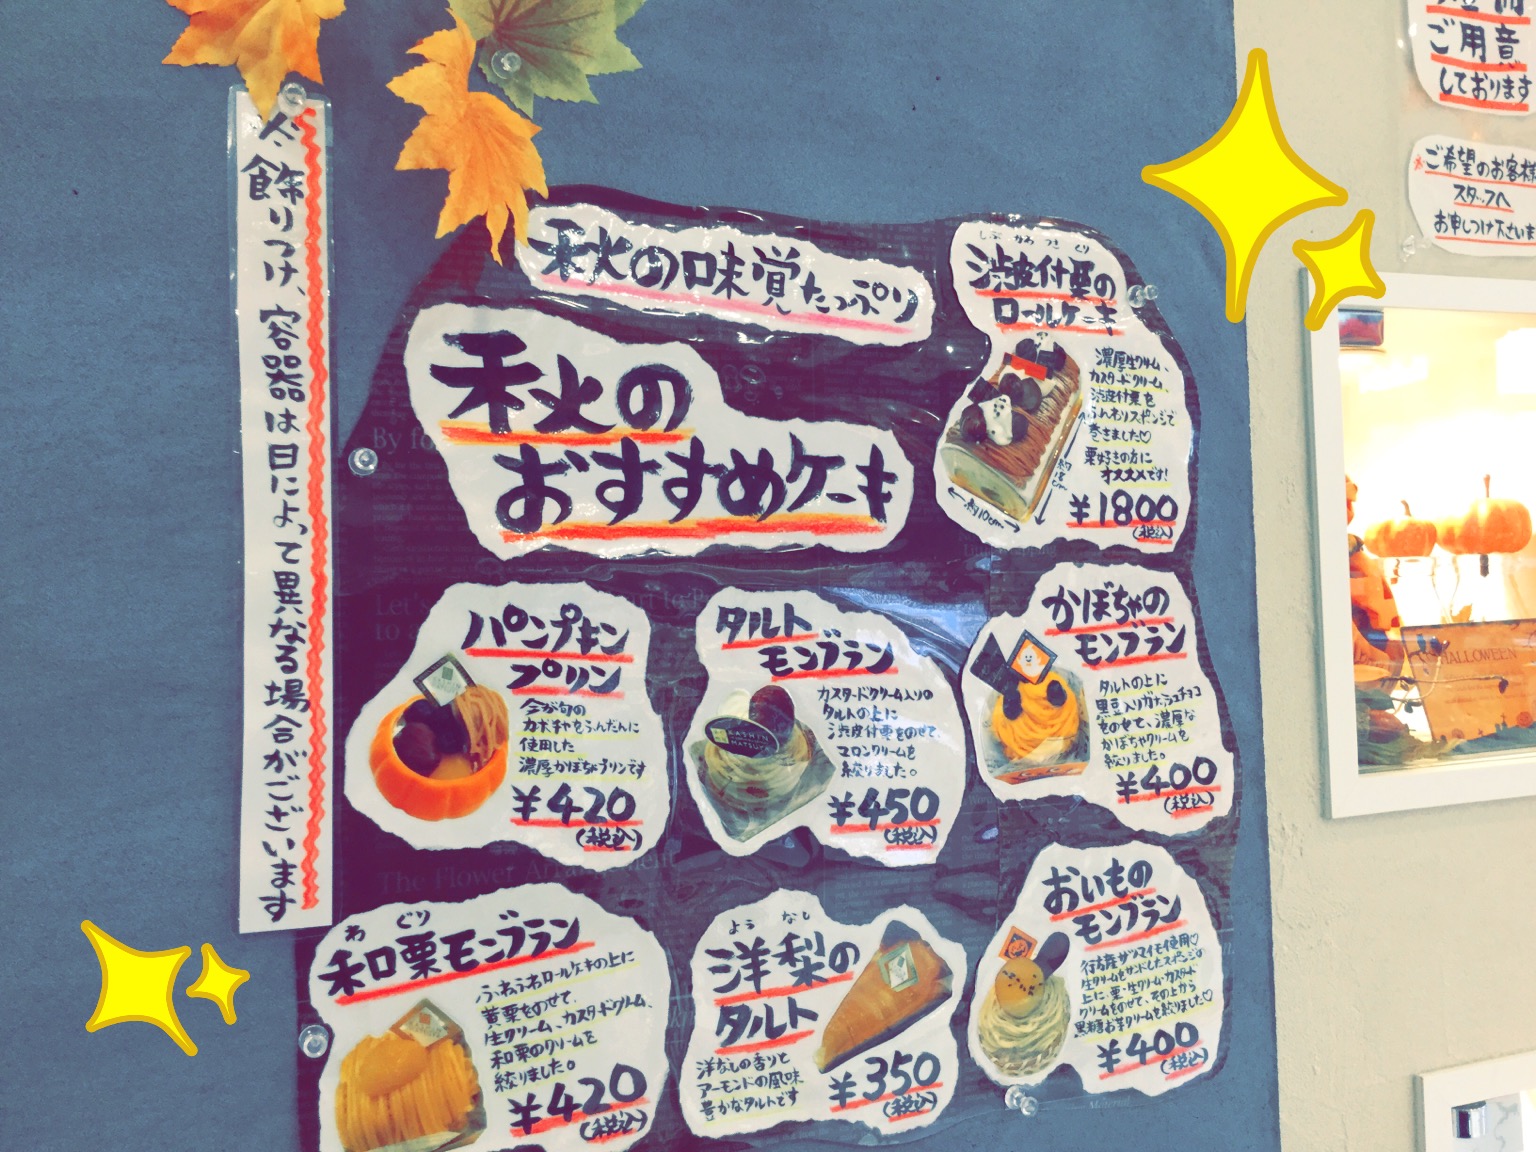 飾りつけ、容器は日によって異なる場合がございます
秋の味覚たっぷり
秋の
おすすめケーキ
しぶ かわ つき ぐり
渋皮付栗の
ロールケーキ
濃厚生クリーム、
カスタードクリーム、
渋皮付栗を
ふんわりスポンジで
巻きました♡
栗好きの方に
オススメです!
約18cm
約10cm
¥1800
(税込)
パンプキン
プリン
今が旬の
カボチャをふんだんに
使用した
濃厚かぼちゃプリンです
¥420
(税込)
タルト
モンブラン
カスタードクリーム入りの
タルトの上に
渋皮付栗をのせて、
マロンクリームを
絞りました。
¥450
(税込)
かぼちゃの
モンブラン
タルトの上に
黒豆入りガナッシュチョコ
をのせて、濃厚な
かぼちゃクリームを
絞りました。
¥400
(税込)
わ ぐり
和栗モンブラン
ふわふわロールケーキの上に
黄栗をのせて、
生クリーム、カスタードクリーム、
和栗のクリームを
絞りました。
¥420
(税込)
よう なし
洋梨の
タルト
洋なしの香りと
アーモンドの風味
豊かなタルトです
¥350
(税込)
おいもの
モンブラン
行方産サツマイモ使用♡
生クリームをサンドしたスポンジの
上に、栗・生クリーム・カスタード
クリームをのせて、その上から
黒糖お芋クリームを絞りました♡
¥400
(税込)
ご用意
しております
※ご希望のお客様
スタッフへ
お申しつけ下さいま
HALLOWEEN
The Flower Arrangement